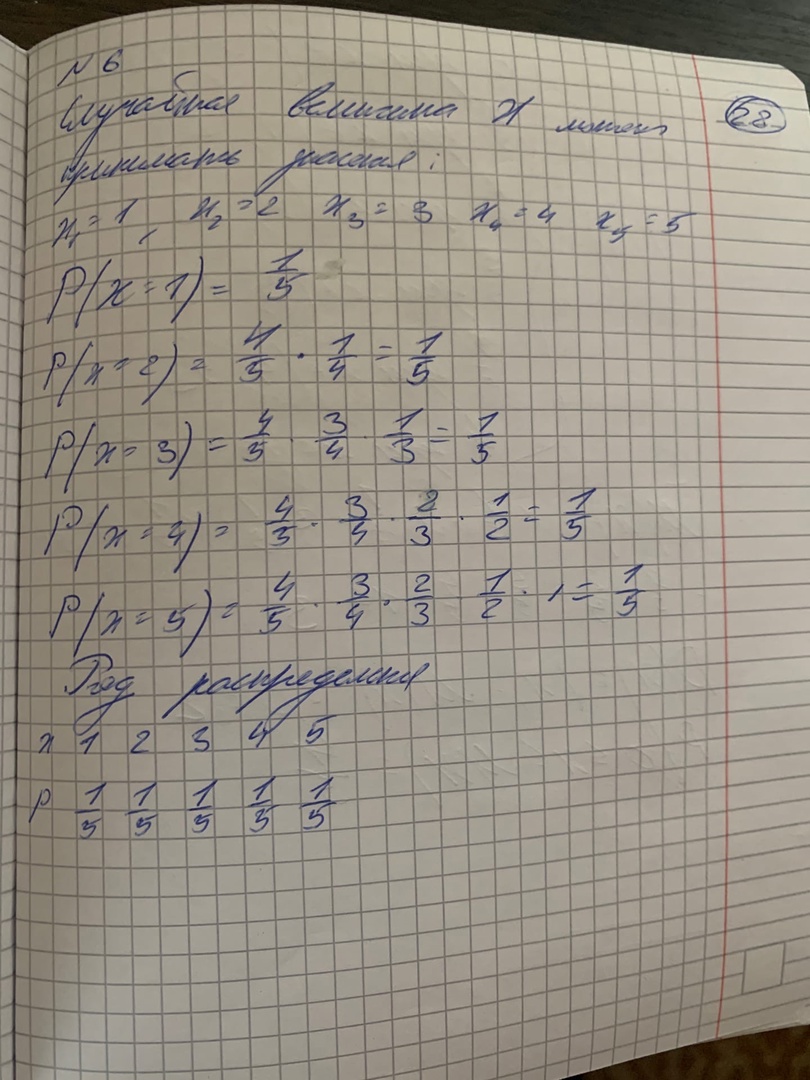 N 6
28
Случайная величина X может
принимать значения:
x₁ = 1, x₂ = 2 x₃ = 3 x₄ = 4 x₅ = 5
P(x = 1) = 1/5
P(x = 2) = 4/5 · 1/4 = 1/5
P(x = 3) = 4/5 · 3/4 · 1/3 = 1/5
P(x = 4) = 4/5 · 3/4 · 2/3 · 1/2 = 1/5
P(x = 5) = 4/5 · 3/4 · 2/3 1/2 · 1 = 1/5
Ряд распределения
x 1 2 3 4 5
p 1/5 1/5 1/5 1/5 1/5